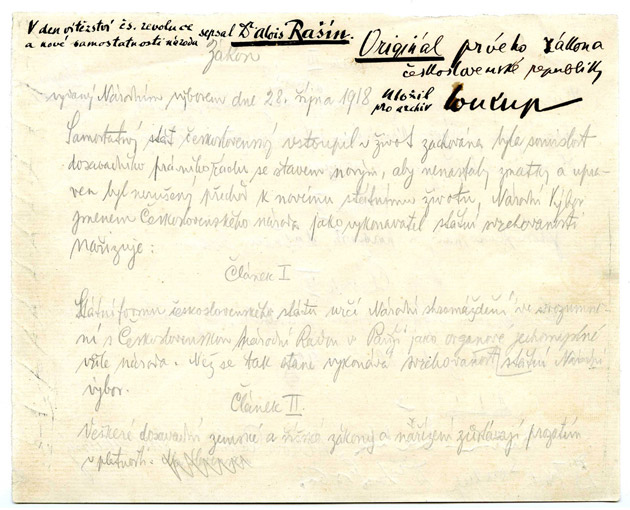 V den vítězství čs. revoluce
a nové samostatnosti národa
sepsal Dr Alois Rašín.
Originál prvého zákona
československé republiky
Uložil
pro archiv
Zákon
vydaný Národním výborem dne 28. října 1918
Samostatný stát československý vstoupil v život zachována byla souvislost
dosavadního právního řádu se stavem novým, aby nenastaly zmatky a upra-
ven byl nerušený přechod k novému státnímu životu, Národní Výbor
jmenem Československého národa jako vykonavatel státní svrchovanosti
nařizuje:
Článek I
Státní formu československého státu určí Národní shromáždění ve srozumě-
ní s Československou Národní Radou v Paříži jako organové jednomyslné
vůle národa. Než se tak stane vykonává svrchovanost státní Národní
výbor.
Článek II.
Veškeré dosavadní zemské a říšské zákony a nařízení zůstávají prozatím
v platnosti.